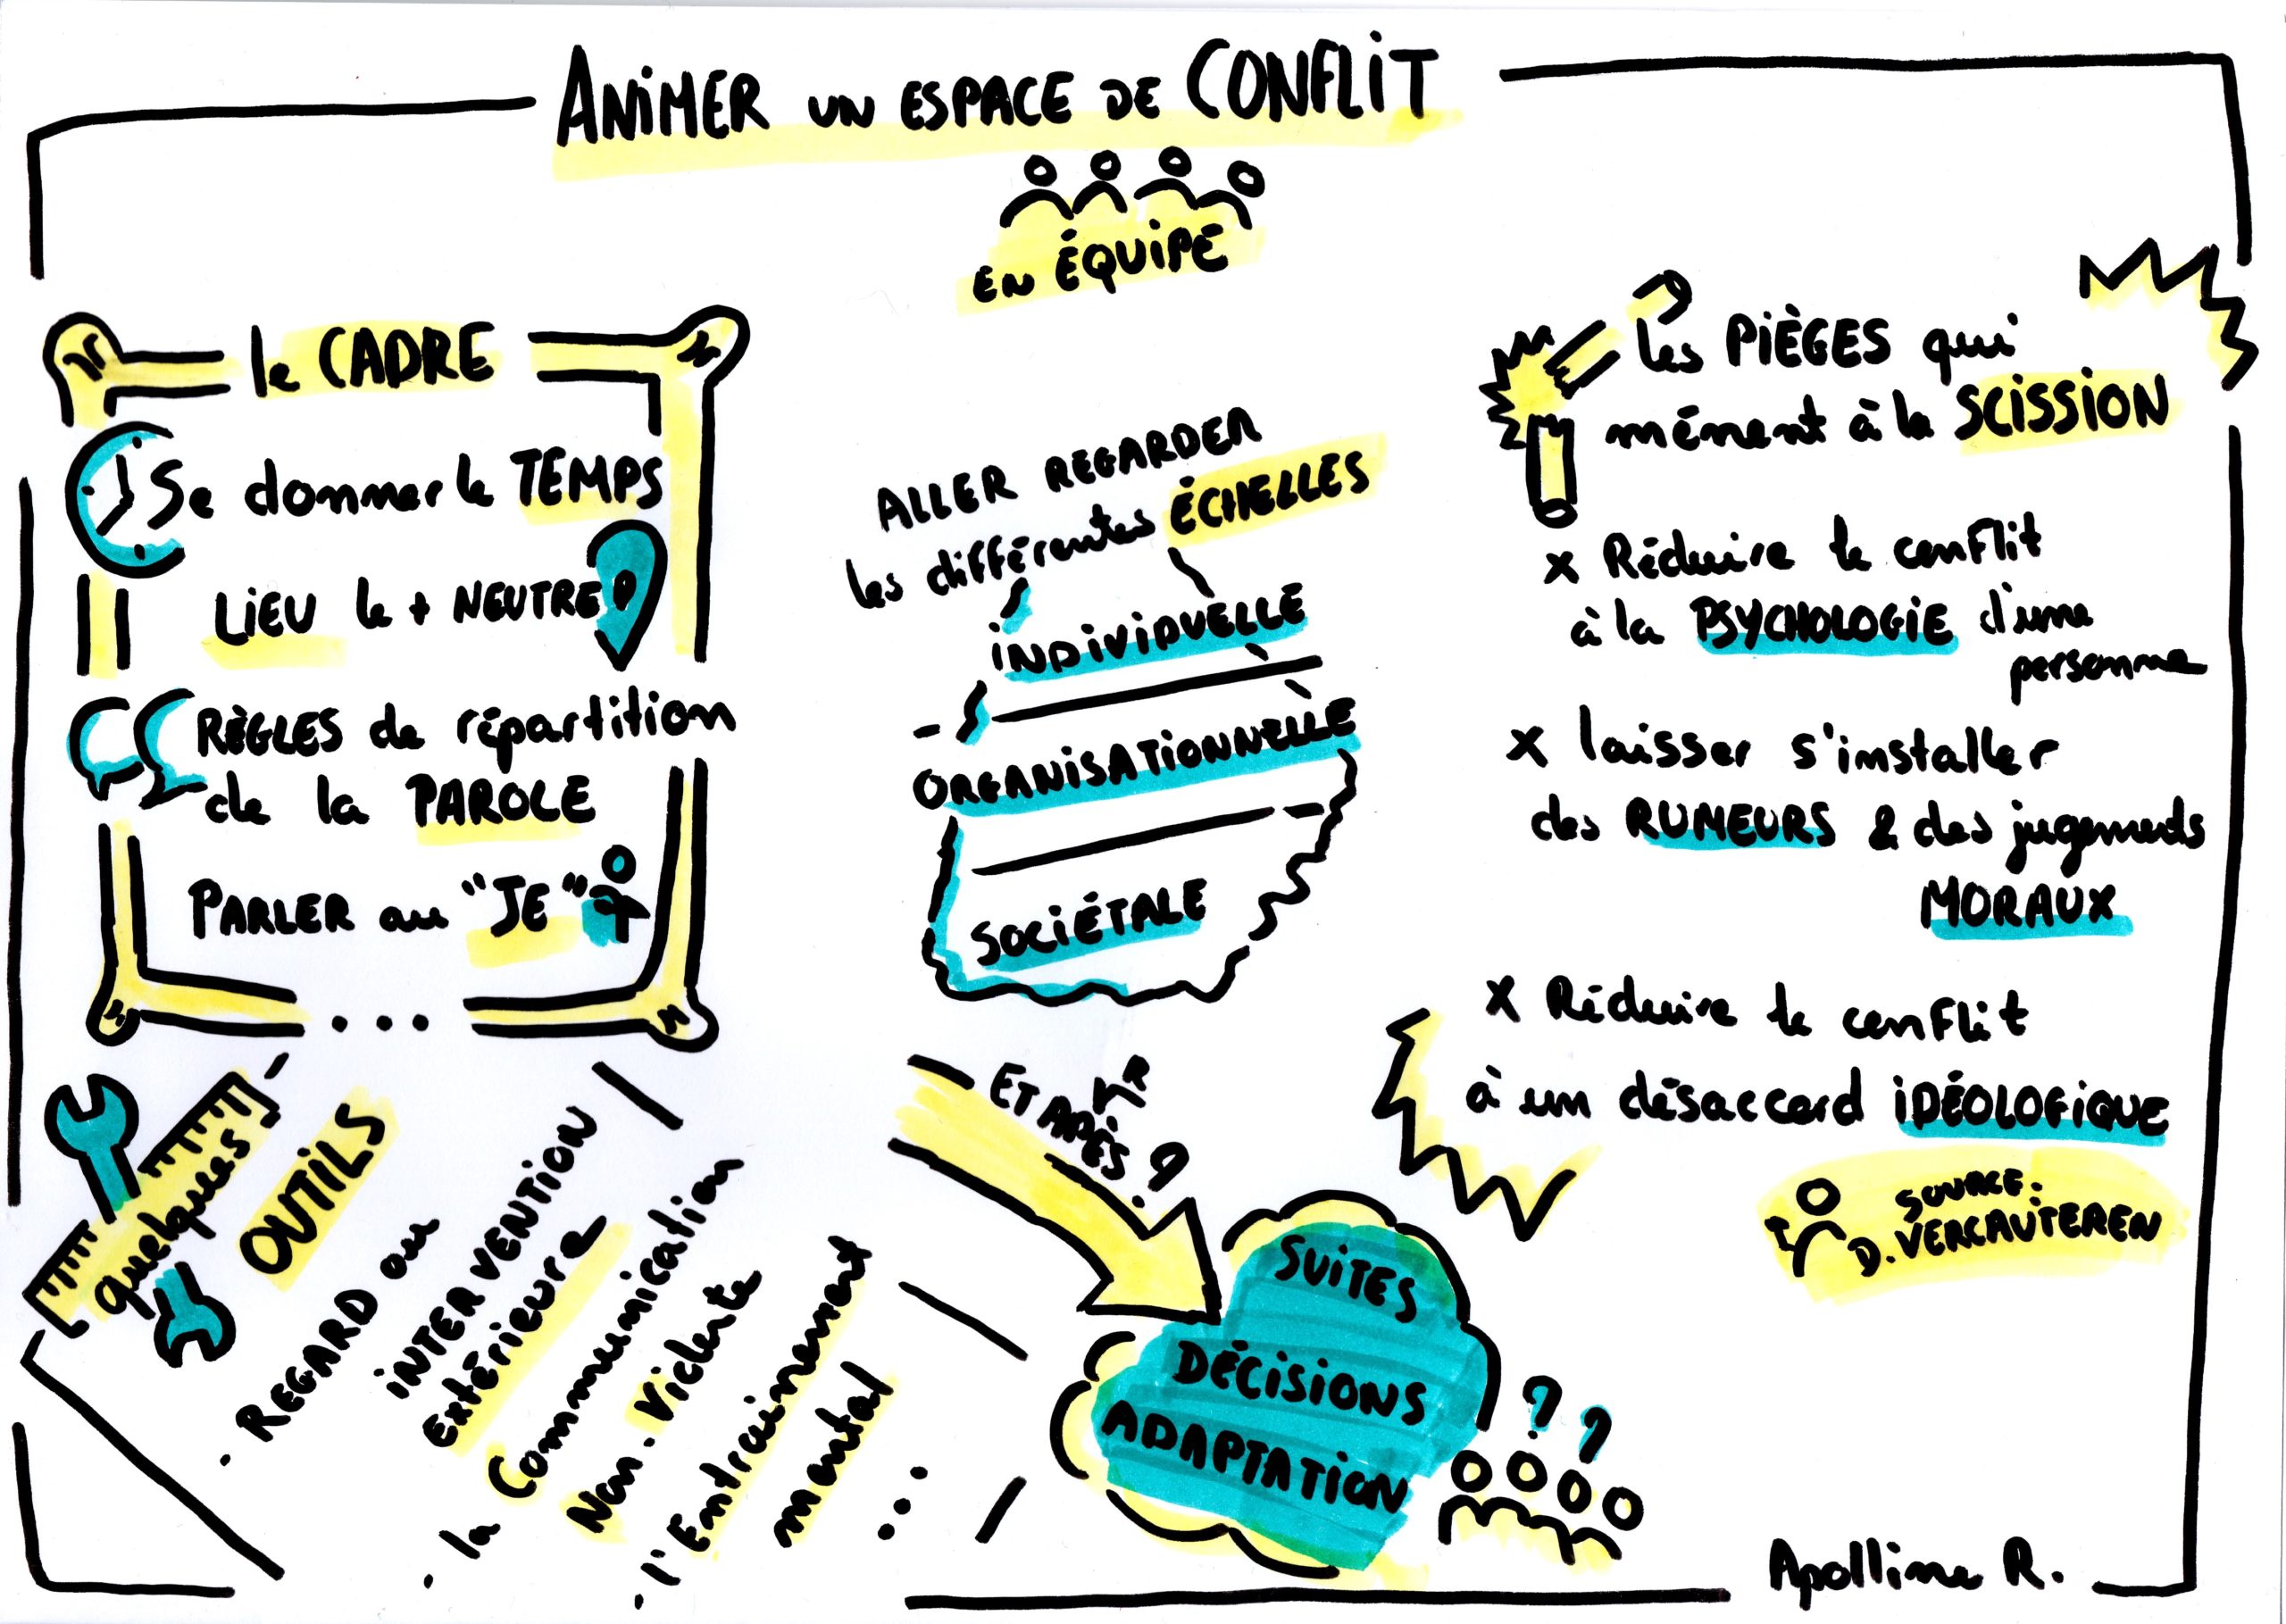 ANIMER UN ESPACE DE CONFLIT
EN ÉQUIPE
le CADRE
Se donner le TEMPS
LIEU le + NEUTRE
RÈGLES de répartition
de la PAROLE
PARLER au "JE"
...
ALLER REGARDER
les différentes ÉCHELLES
INDIVIDUELLE
ORGANISATIONNELLE
SOCIÉTALE
les PIÈGES qui
mènent à la SCISSION
x Réduire le conflit
à la PSYCHOLOGIE d'une
personne
x laisser s'installer
des RUMEURS & des jugements
MORAUX
x Réduire le conflit
à un désaccord IDÉOLOGIQUE
SOURCE:
D. VERCAUTEREN
quelques
OUTILS
. REGARD ou
INTERVENTION
extérieure
. la Communication
Non-Violente
. l'Entrainement
mental
...
ET APRÈS ?
SUITES
DÉCISIONS
ADAPTATION
? ?
Apolline R.